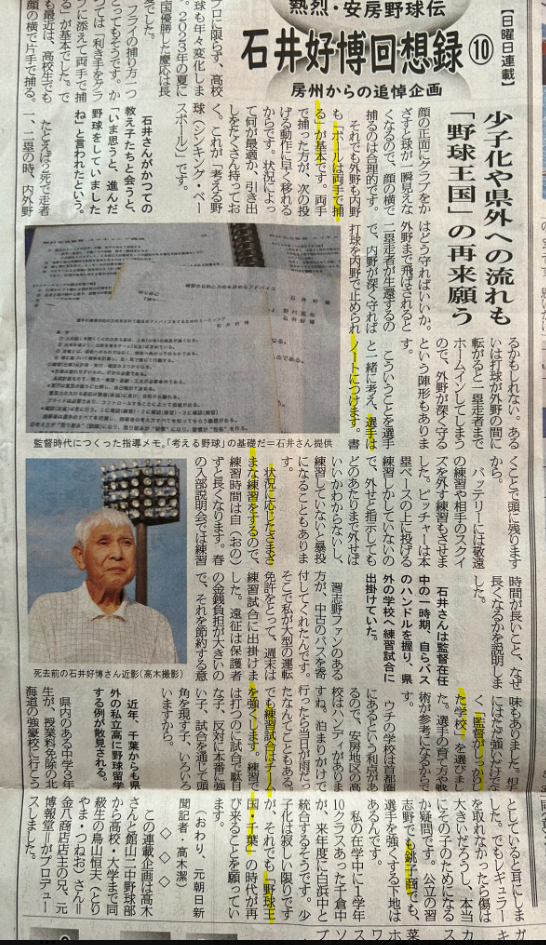 【日曜日連載】
熱烈・安房野球伝
石井好博回想録⑩
房州からの追悼企画
少子化や県外への流れも
「野球王国」の再来願う
プロに限らず、高校
球も年々変化しま
2023年の夏に
国優勝した慶応は長
でした。
フライの捕り方一つ
とってもそうです。か
つては「利き手をグラ
ブに添えて両手で捕
る」が基本でした。で
も最近は、高校生でも
顔の横で片手で捕る。
顔の正面にグラブをか
ざすと球が一瞬見えな
くなるので、顔の横で
捕るのは合理的です。
それでも外野も内野
も「ボールは両手で捕
る」が基本です。両手
で捕った方が、次の投
げる動作に早く移れる
からです。状況によっ
て何が最適か、引き出
しをたくさん持ってお
く。これが「考える野
球（シンキング・ベー
スボール）」です。
石井さんがかつての
教え子たちと会うと、
「いま思うと、進んだ
野球をしていました
ね」と言われたという。
たとえば1死で走者
一、二塁の時、内外野
はどう守ればいいか。
外野まで飛ばされると
二塁走者が生還するの
で、内野が深く守れば
打球を内野で止められ
るかもしれない。ある
いは打球が外野の間に
転がると一塁走者まで
ホームインしてしまう
ので、外野が深く守る
という陣形もありま
す。
こういうことを選手
と一緒に考え、選手は
ノートにつけます。書
くことで頭に残ります
から。
バッテリーには敬遠
の練習や相手のスクイ
ズを外す練習もさせま
した。ピッチャーは本
塁ベースの上に投げる
練習しかしていないの
で、外せと指示しても
どのあたりまで外せば
いいかわからないし、
練習していないと暴投
になることもありま
す。
状況に応じたさまざ
まな練習をするので、
練習時間は自（おの）
ずと長くなります。春
の入部説明会では練習
時間が長いこと、なぜ
長くなるかを説明しま
した。
石井さんは監督在任
中の一時期、自らバス
のハンドルを握り、県
外の学校へ練習試合に
出掛けていた。
習志野ファンのある
方が、中古のバスを寄
付してくれたんです。
そこで私が大型の運転
免許をとって、週末は
練習試合に出掛けま
した。遠征は保護者
の金銭負担が大きいの
で、それを節約する意
味もありました。相手
にはただ強いだけでな
く、「監督がしっかりし
た学校」を選びま
した。選手の育て方や戦
術が参考になるからで
す。
ウチの学校は首都圏
にあるという利点があ
るので、安房地区の高
校はハンディがありま
すね。泊まりがけで
行ったら当日が雨だっ
たなんてこともある。
でも練習試合はチーム
を強くします。練習で
は打つのに試合で駄目
な子、反対に本番に強
い子、試合を通して頭
角を現す子、いろいろ
いますから。
近年、千葉からも県
外の私立高に野球留学
する例が散見される。
県内のある中学3年
生が、授業料免除の北
海道の強豪校に行こう
としていると耳にしま
した。でもレギュラー
を取れなかったら傷は
大きいだろうし、本当
にその子のためになる
か疑問です。公立の習
志野でも銚子商でも、
選手を強くする下地は
あるんです。
私の在学中に1学年
10クラスあった千倉中
が、来年度に白浜中と
統合するそうです。少
子化は寂しい限りです
が、それでも「野球王
国・千葉」の時代が再
び来ることを願ってい
ます。
（おわり、元朝日新
聞記者・高木潔）
◇　◇
この連載企画は高木
さんと館山二中野球部
から高校・大学まで同
級生の鳥山恒夫（とり
やま・つねお）さん＝
金八商店店主の兄、元
博報堂＝がプロデュー
スしました。
監督時代につくった指導メモ。「考える野球」の基礎だ＝石井さん提供
死去前の石井好博さん近影（高木撮影）